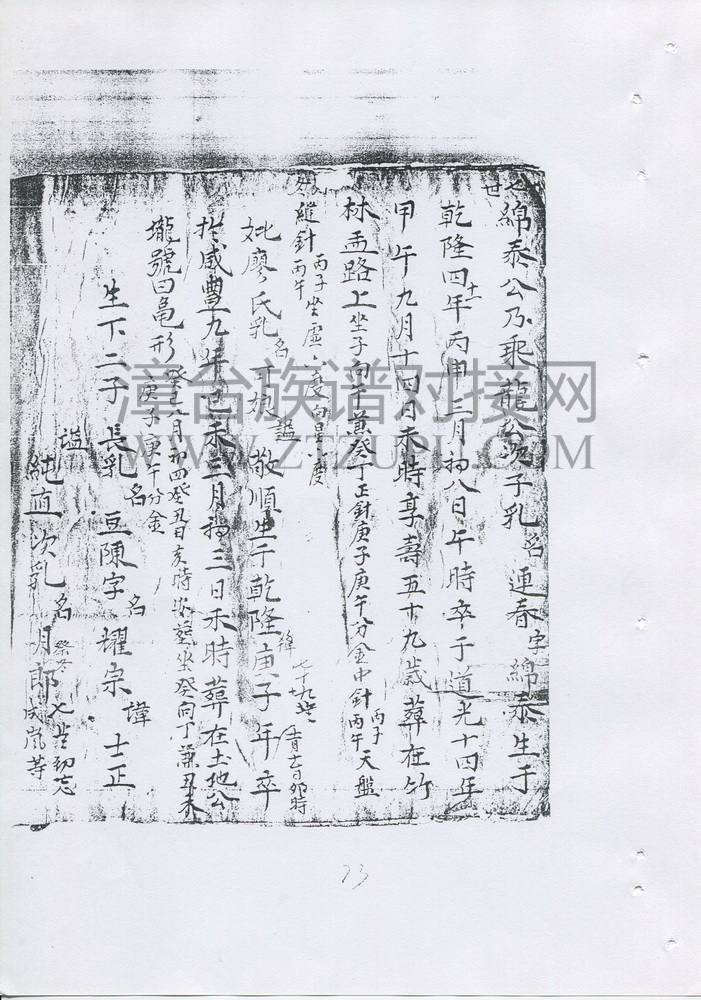 七世 綿泰公乃乘龍公次子乳名迎春字綿泰生于
乾隆四十一年丙申二月初八日午時卒于道光十四年
甲午九月十四日未時享壽五十九歲葬在竹
林盂路上坐子向午兼癸丁正針庚子庚午分金中針丙子丙午天盤
縫針丙子丙午坐虛六度向星六度
妣廖氏乳名丁娘謚敬順生于乾隆庚子年卒
七十九 十一月十一日卯時
於咸豐九年己未三月初三日未時葬在土地公
壠號曰龜形癸巳八月初四癸丑日亥時坐癸向丁兼丑未
庚子庚午分金
生下二子長乳名亘陳字名耀宗諱士正
謚純直次乳名月郎
漳台族谱对接网
WWW.ZTZUPU.COM
73